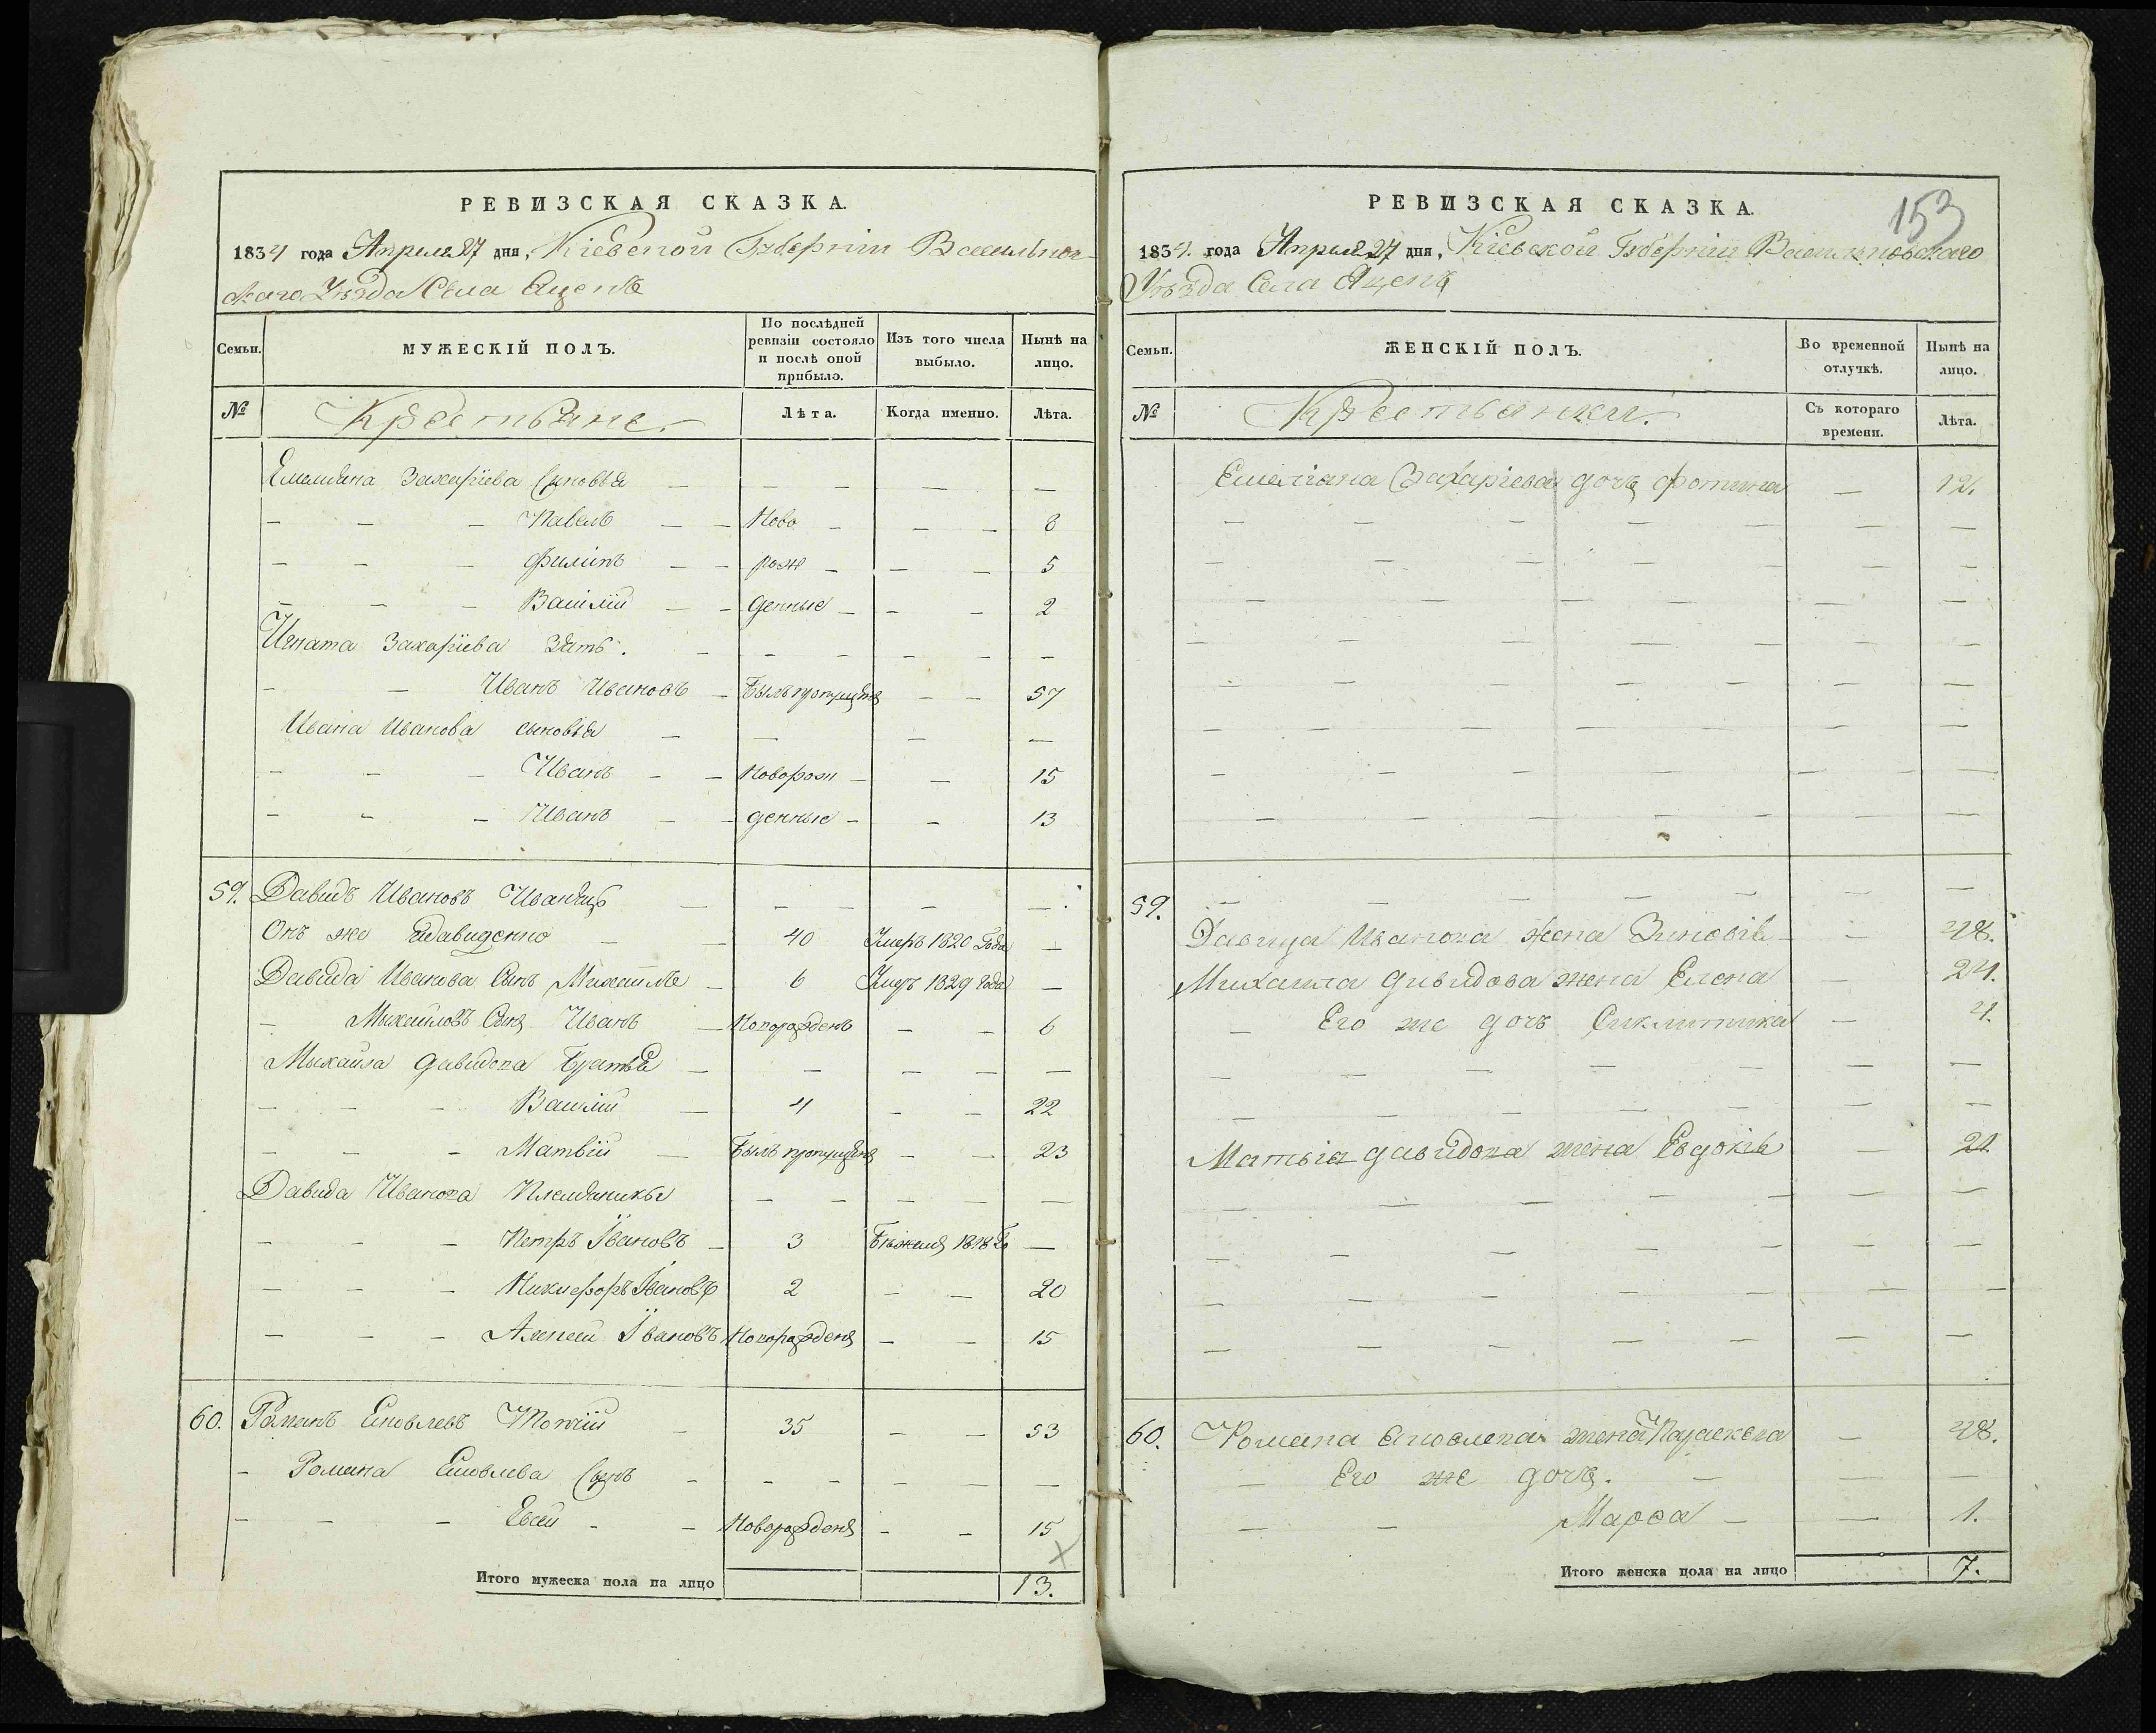 РЕВИЗСКАЯ СКАЗКА.
1834 года Апреля 27 дня, Кіевской Губерніи Васильков-
скаго Уѣзда Села Яценъ
Семьи.
МУЖЕСКІЙ ПОЛЪ.
По послѣдней ревизіи состояло и послѣ оной прибыло.
Изъ того числа выбыло.
Нынѣ на лицо.
№
Крестьяне.
Лѣта.
Когда именно.
Лѣта.
Емельяна Захаріева Сыновья — — — — —
— — — Павелъ — — Ново — — — 8
— — — Филипъ — — рож — — — 5
— — — Василій — — денные — — — 2
Игната Захаріева Зять. — — — — — —
— — Иванъ Ивановъ — Былъ пропущенъ — — 57
Ивана Иванова сыновья — — — —
— — — Иванъ — — Новорож — — 15
— — — Иванъ — — денные — — 13
59. Давидъ Ивановъ — — — — — —
Онъ же Давиденко — — 40 Умеръ 1820 Года —
Давида Иванова Сынъ Михаилъ — 6 Умеръ 1829 года —
— Михайловъ Сынъ Иванъ — Новорожденъ — — 6
Михайла Давидова Братья — — — — —
— — — Василій — 4 — — 22
— — — Матвій — Былъ пропущенъ — — 23
Давида Иванова Племяники — — — — —
— — — Петръ Івановъ — 3 Бѣжалъ 1818 Го —
— — — Никифоръ Івановъ 2 — — 20
— — — Алексѣй Івановъ Новорожденъ — — 15
60. Романъ Яковлевъ — 35 — — 53
— Романа Яковлева Сынъ — — — — — —
— — — Евсей — — Новорожденъ — — 15
Итого мужеска пола на лицо 13.
153
РЕВИЗСКАЯ СКАЗКА.
1834. года Апреля 27 дня, Кіевской Губерніи Васильковскаго
Уѣзда Села Яценъ
Семьи.
ЖЕНСКІЙ ПОЛЪ.
Во временной отлучкѣ.
Нынѣ на лицо.
№
Крестьянки.
Съ котораго времени.
Лѣта.
Емеліана Захаріева дочъ Фотина — 12.
59.
Давида Иванова жена Зиновія — — 48.
Михаила Давидова жена Елена — 24.
— Его же дочъ — 4.
Матвія Давидова жена Евдокія — 21
60. Романа Яковлева жена Параскева — 48.
— Его же дочъ. — — —
— — Марѳа — — 1.
Итого женска пола на лицо 7.